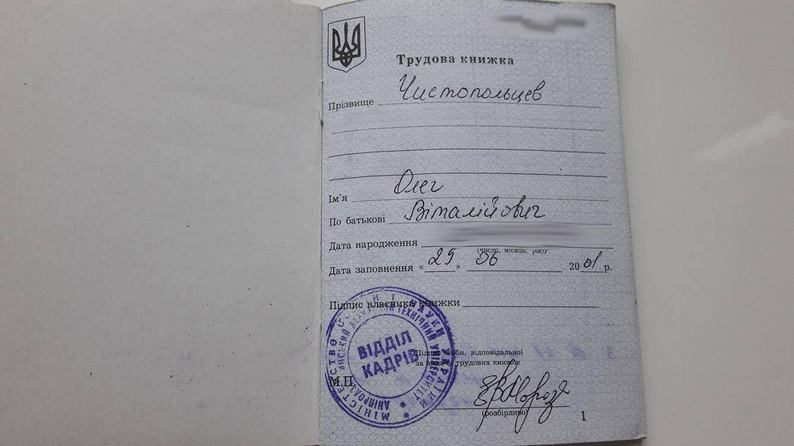 Трудова книжка
Прізвище Чистопольцев
Ім'я Олег
По батькові Віталійович
Дата народження
(число, місяць, рік)
Дата заповнення « 29 » 06 2001 р.
Підпис власника книжки
МІНІСТЕРСТВО ОСВІТИ І НАУКИ УКРАЇНИ
ДЕРЖАВНИЙ ТЕХНІЧНИЙ УНІВЕРСИТЕТ
ВІДДІЛ
КАДРІВ
Підпис особи, відповідальної
за видачу трудових книжок
М.П.
(розбірливо)
1